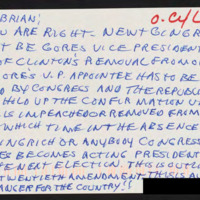 BRIAN: O.C4L
U ARE RIGHT- NEWT GINGR
T BE GORES VICE PRESIDENT
F CLINTON'S REMOVAL FROM O
ORES V.P APPOINTEE HAS TO BE
D BY CONGRESS AND THE REPUBL
HOLD UP THE CONFIRMATION U
IS IMPEACHED OR REMOVED FROM
WHICH TIME IN THE ABSENCE
INGRICH OR ANYBODY CONGRESS
ES BECOMES ACTING PRESIDENT
NENT ELECTION. THIS IS OUTL
TWENTIETH AMENDMENT. THIS IS A
ANGER FOR THE COUNTRY!!